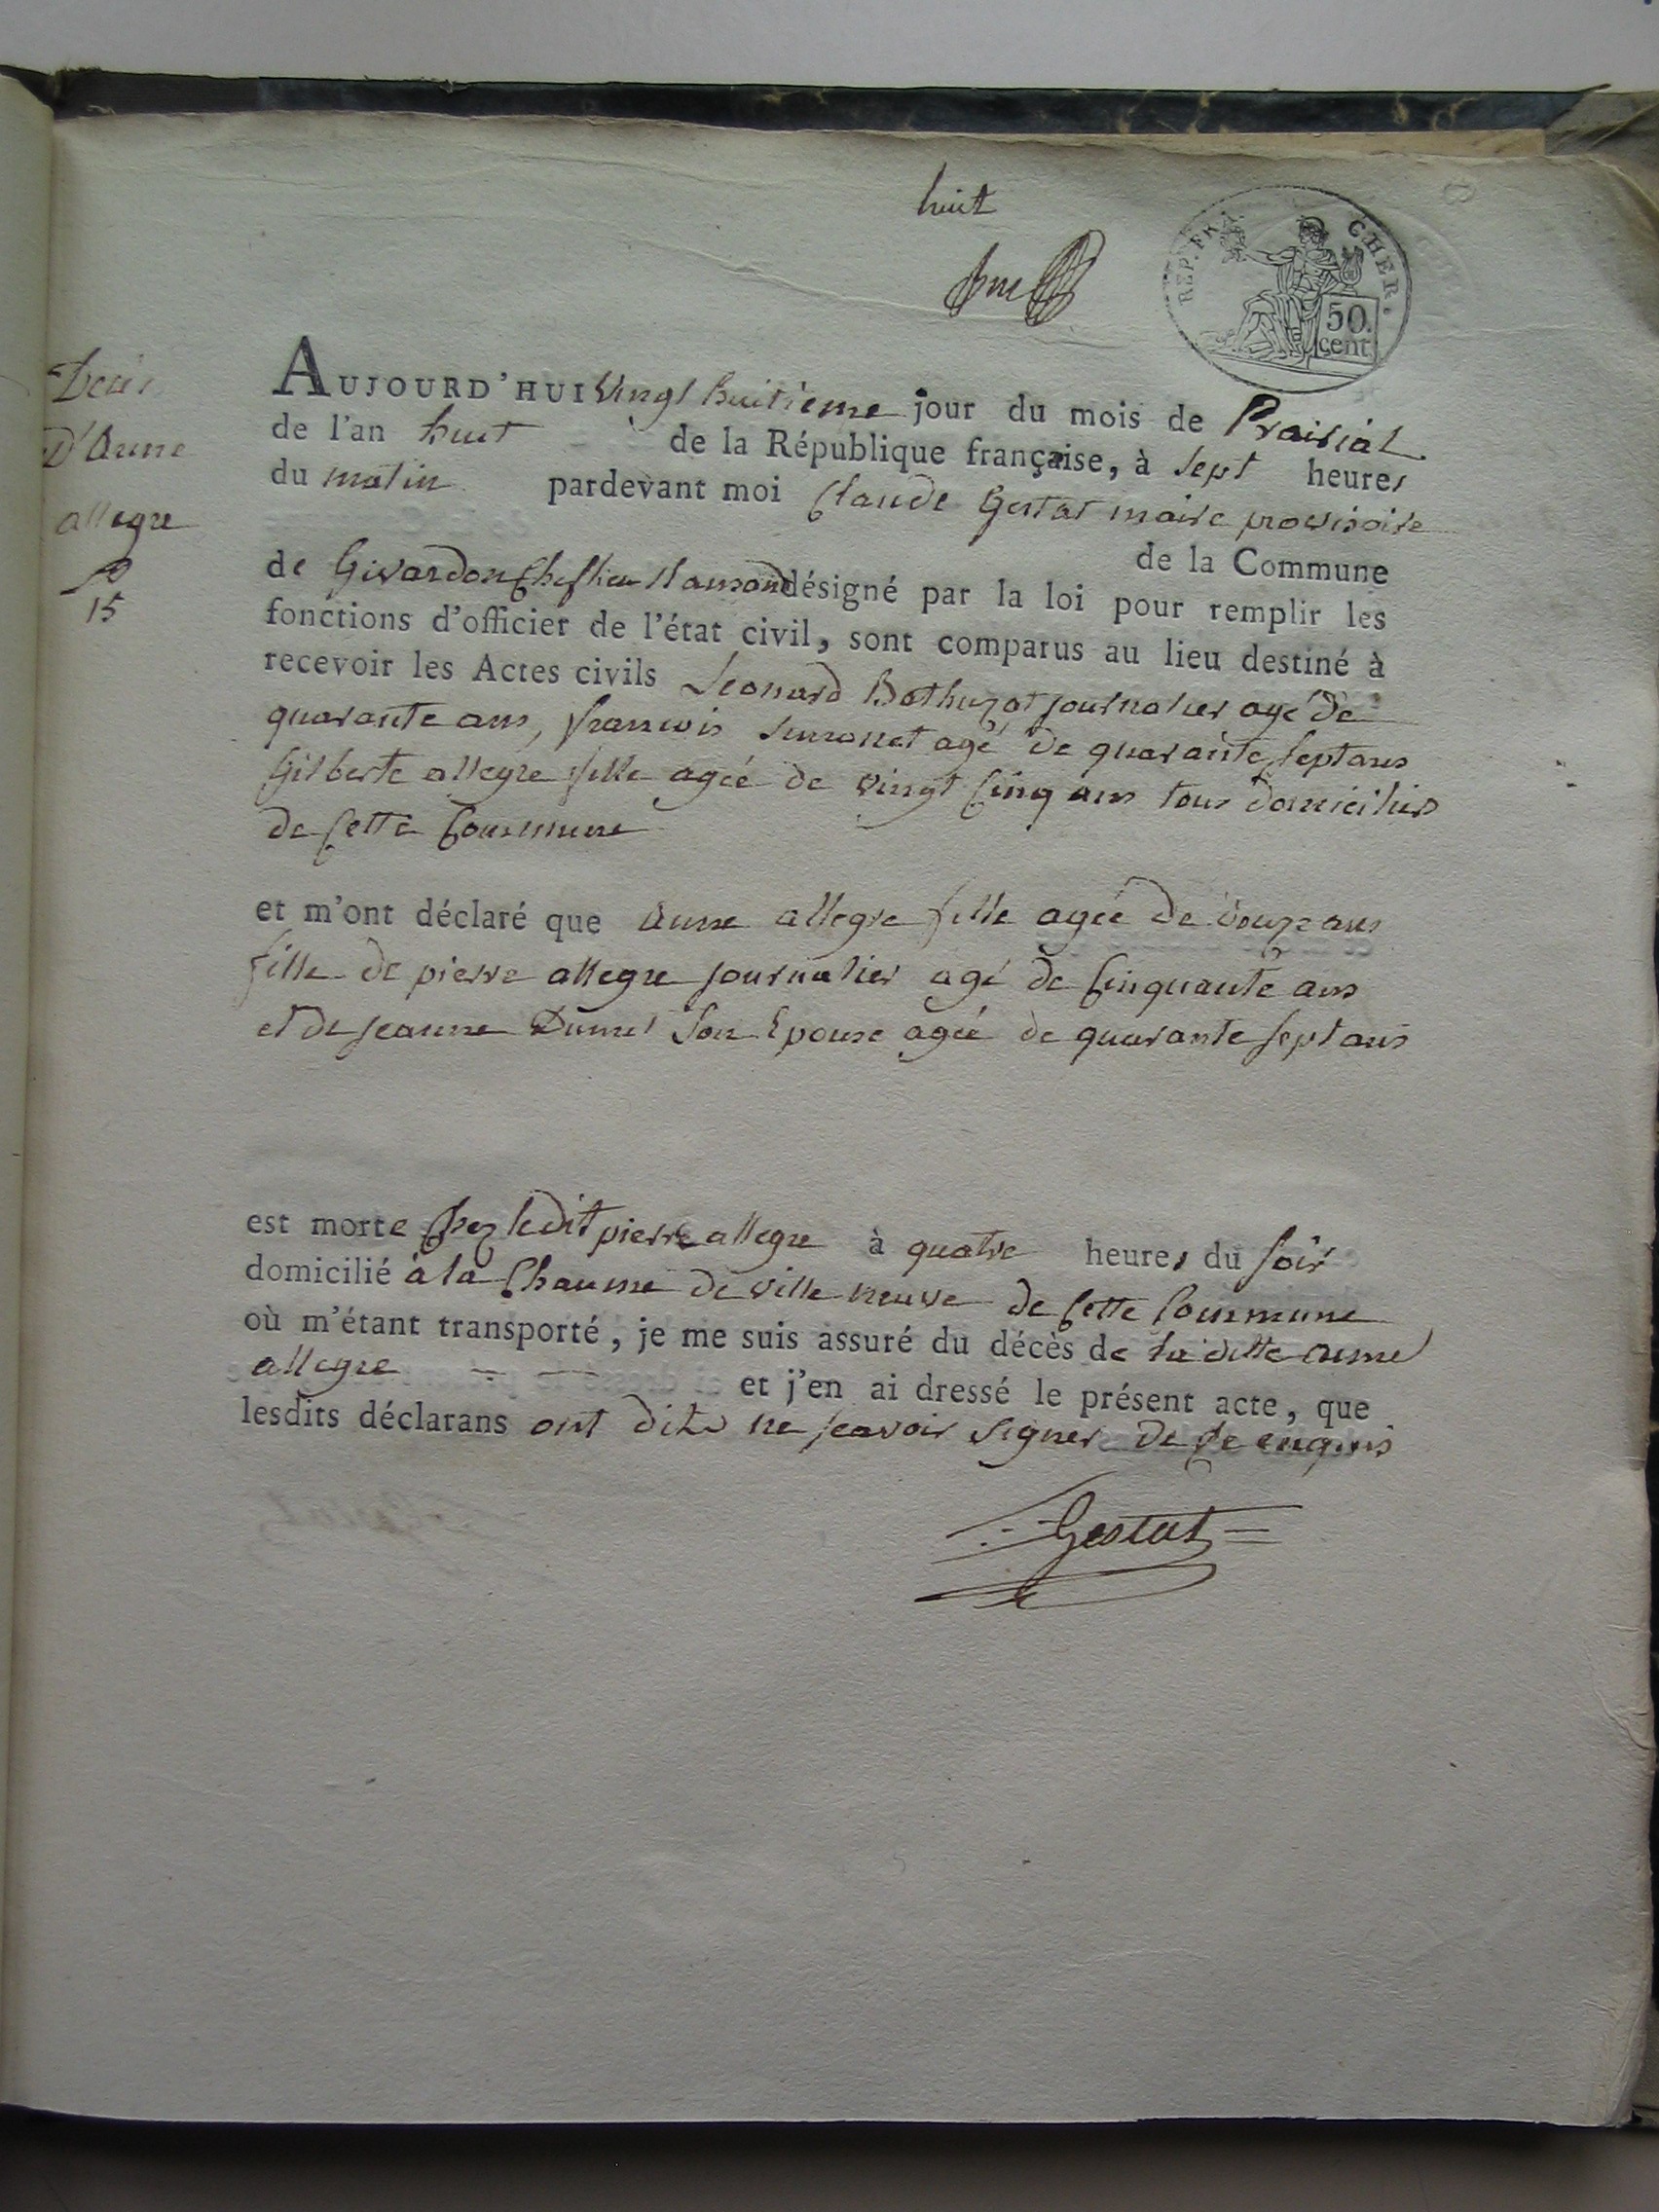 huit
REP. FRA. CHER.
50.
cent.
Deces
D'Anne
allegre
15
AUJOURD'HUI Vingt huitieme jour du mois de Prairial
de l'an huit de la République française, à sept heures
du matin pardevant moi Claude Gestat maire provisoire
de la Commune
de Givardon Cheflieu désigné par la loi pour remplir les
fonctions d'officier de l'état civil, sont comparus au lieu destiné à
recevoir les Actes civils Leonard journalier agé de
quarante ans, francois agé de quarante sept ans
Gilberte allegre fille agée de vingt Cinq ans tous domiciliés
de Cette Commune
et m'ont déclaré que Anne allegre fille agée de douze ans
fille de pierre allegre journalier agé de Cinquante ans
et de jeanne Son Epouse agée de quarante sept ans
est morte Chez ledit pierre allegre à quatre heures du soir
domicilié à la Chaume de ville neuve de Cette Commune
où m'étant transporté, je me suis assuré du décès de la ditte anne
allegre et j'en ai dressé le présent acte, que
lesdits déclarans ont dits ne scavoir signer de ce enquis
Gestat